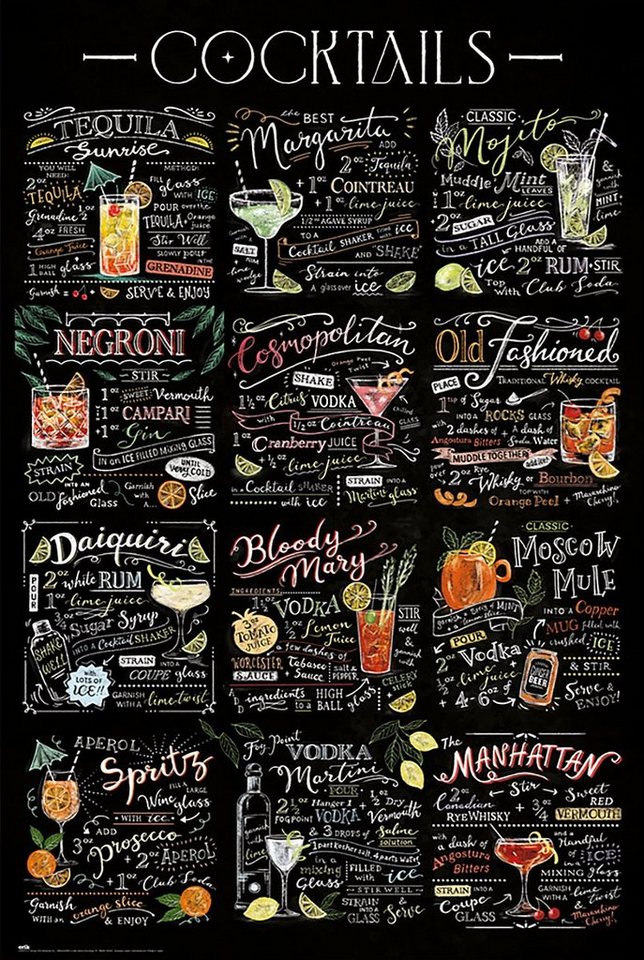 COCKTAILS
TEQUILA
Sunrise
YOU WILL NEED:
2oz TEQUILA
Grenadine
4oz FRESH
Orange Juice
1 HIGH BALL glass
METHOD:
FILL glass
WITH ICE
POUR over
TEQUILA + Orange juice
Stir Well
SLOWLY pour in the
GRENADINE
Garnish = + SERVE & ENJOY
the BEST
Margarita
ADD
2oz Tequila
+ 1oz COINTREAU
+ 1oz lime juice
1/2oz AGAVE SYRUP
TO A
Cocktail SHAKER, filled ice
AND SHAKE
SALT
lime wedge
Strain into
A glass over ice
CLASSIC
Mojito
Muddle Mint LEAVES
+ 1oz lime juice
+ 2oz SUGAR
in a TALL Glass
& garnish with MINT & lime
ADD A HANDFUL OF
ice 2oz RUM + STIR
Top with Club Soda
NEGRONI
STIR
1oz SWEET Vermouth
1oz CAMPARI
1oz Gin
IN an ICE FILLED MIXING GLASS
STRAIN
UNTIL very COLD
INTO AN
OLD fashioned Glass
Garnish with A... Slice
Cosmopolitan
Orange Peel Twist
SHAKE
1½oz Citrus VODKA
with 1/2oz Cointreau
1oz Cranberry JUICE
+ ½oz lime juice
chilled GLASS
in a Cocktail SHAKER
with ice
STRAIN INTO A
Martini glass
Old Fashioned
TRADITIONAL Whisky COCKTAIL
PLACE
1tsp of Sugar
INTO A ROCKS GLASS
with 2 dashes of Angostura Bitters
+ A dash of Soda Water
MUDDLE TOGETHER
add ice
pour over 2oz Rye
Whisky or Bourbon
TOP WITH
Orange Peel + Maraschino Cherry!
Daiquiri
POUR
2oz white RUM
1oz lime juice
3/4oz Sugar Syrup
INTO A Cocktail SHAKER
SHAKE WELL
with LOTS OF ICE!!
STRAIN INTO A
COUPE glass
GARNISH WITH A lime twist
Bloody Mary
INGREDIENTS:
1½oz VODKA
3oz TOMATO JUICE
½oz Lemon Juice
a few dashes of
WORCESTER SAUCE
Tabasco Sauce
salt & PEPPER
STIR well & garnish with CELERY stick
ingredients to a HIGH BALL glass
CLASSIC
MOSCOW MULE
garnish = Sprig of MINT
lime slice
INTO A Copper
MUG filled with
crushed ICE
POUR
2oz Vodka
+ ½oz lime juice
+ 4-6oz
GINGER BEER
& STIR
Serve & ENJOY!
APEROL
Spritz
FILL A LARGE
Wine glass
WITH ice
ADD
3oz Prosecco
+ 2oz APEROL
+ 1oz Club Soda
Garnish WITH AN orange slice & ENJOY
Fog Point
VODKA
Martini
POUR
2½oz Hanger 1 FOGPOINT VODKA
+ ½oz Dry Vermouth
& 3 DROPS of Saline solution
1 part kosher salt, 4 parts water
in a mixing Glass
FILLED with ice
STIR WELL
garnish with lime
STRAIN INTO A GLASS & Serve
The
MANHATTAN
Stir
2oz Canadian RYE WHISKY
+ 3/4oz Sweet RED VERMOUTH
with a dash of Angostura Bitters
and a Handful of ICE
in a MIXING GLASS
STRAIN INTO A
Coupe GLASS
GARNISH WITH A lime twist & Maraschino Cherry!
erik